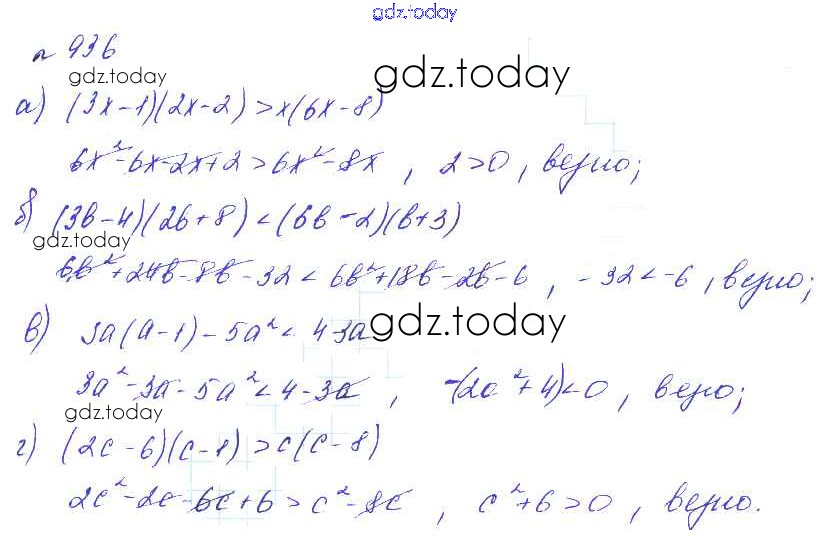 gdz.today
№ 936
gdz.today
gdz.today
а) (3x-1)(2x-2) > x(6x-8)
6x²-6x-2x+2 > 6x²-8x, 2>0, верно;
б) (3b-4)(2b+8) < (6b-2)(b+3)
gdz.today
6b²+24b-8b-32 < 6b²+18b-2b-6, -32<-6, верно;
в) 3a(a-1)-5a² < 4-3a
gdz.today
3a²-3a-5a² < 4-3a, -(2a²+4)<0, верно;
gdz.today
г) (2c-6)(c-1) > c(c-8)
2c²-2c-6c+6 > c²-8c, c²+6>0, верно.